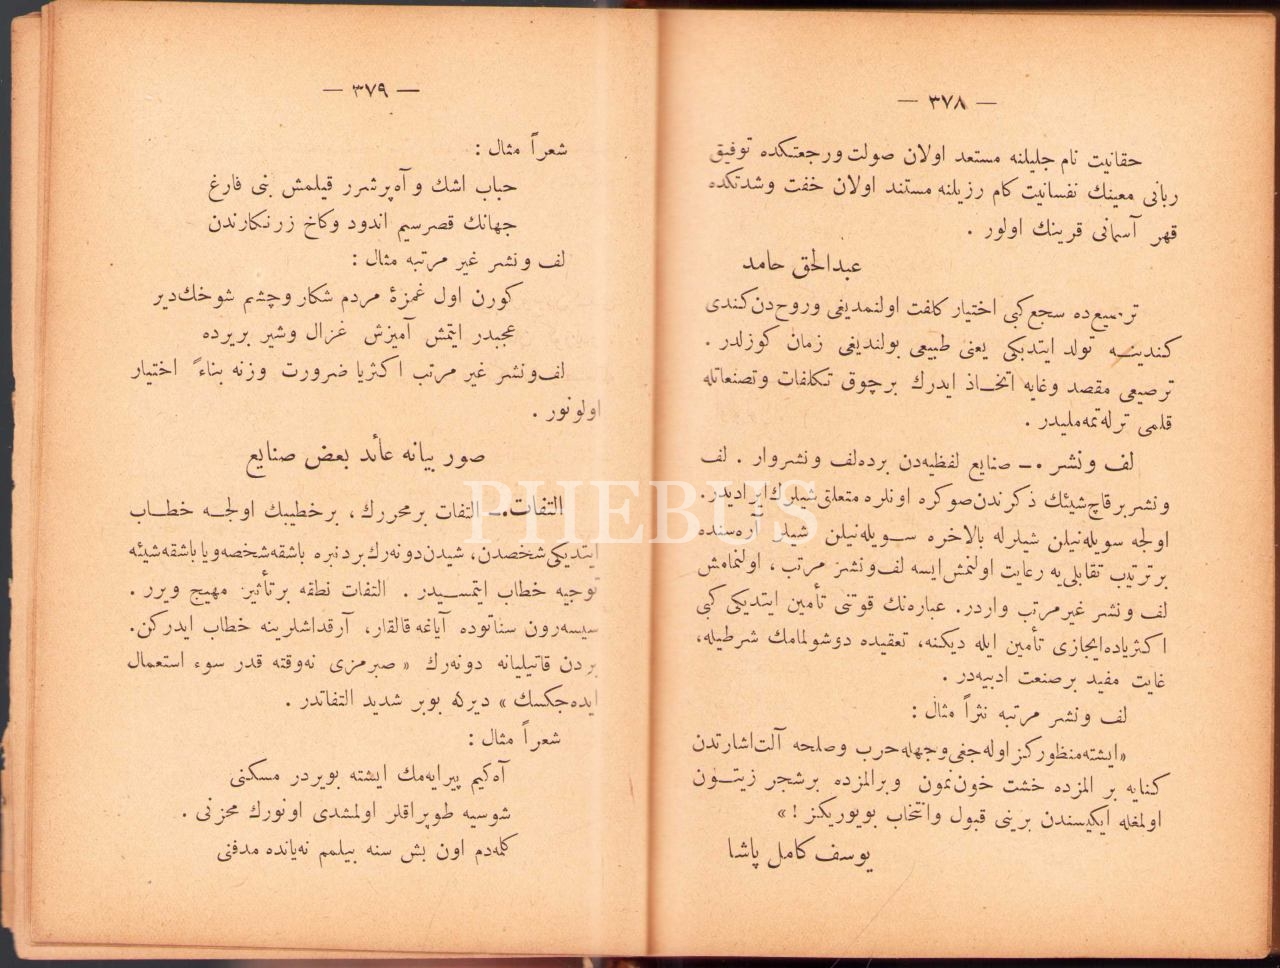 — ٣٧٨ —
حقانیت نام جلیلنه مستعد اولان صولت ورجعتكده توفیق
ربانی معینك نفسانیت كام رزیلنه مستند اولان خفت وشدتكده
قهر آسمانی قرینك اولور .
عبدالحق حامد
ترصیع‌ده سجع كبی اختیار كلفت اولنمدیغی وروح‌دن كندی
كندینــه تولد ایتدیكی یعنی طبیعی بولندیغی زمان كوزلدر .
ترصیعی مقصد وغایه اتخــاذ ایدرك برچوق تكلفات وتصنعاتله
قلمی ترله‌تمه‌ملیدر .
لف ونشر .— صنایع لفظیه‌دن برده‌لف ونشروار . لف
ونشر برقاچ شیئك ذكرندن‌صوكره اونلره متعلق شیلرك ایرادیدر.
اولجه سویله‌نیلن شیلرله بالاخره سویله‌نیلن شیلر آره‌سنده
برترتیب تقابلی‌یه رعایت اولنمش ایسه لف‌ونشر مرتب ، اولنمامش
لف ونشر غیرمرتب واردر. عباره‌نك قوتنی تأمین ایتدیكی كبی
اكثریاده‌ایجازی تأمین ایله دیكنه، تعقیده دوشولمامك شرطیله،
غایت مفید برصنعت ادبیه‌در .
لف ونشر مرتبه نثراً مثال :
«ایشته‌منظوركز اوله‌جغی‌وجهله حرب وصلحه آلت‌اشارتدن
كنایه بر المزده خشت خون‌نمون وبرالمزده برشجر زیتــون
اولمغله ایكیسندن برینی قبول وانتخاب بویوریكز ! »
یوسف كامل پاشا
— ٣٧٩ —
شعراً مثال :
حباب اشك و آه‌پرشرر قیلمش بنی فارغ
جهانك قصرسیم اندود وكاخ زرنكارندن
لف ونشر غیر مرتبه مثال :
كورن اول غمزۀ مردم شكار وچشم شوخك‌دیر
عجبدر ایتمش آمیزش غزال وشیر بریرده
لف‌ونشر غیر مرتب اكثریا ضرورت وزنه بناءً اختیار
اولونور .
صور بیانه عائد بعض صنایع
التفات.— التفات برمحررك ، برخطیبك اولجــه خطــاب
ایتدیكی‌شخصدن، شیدن‌دونه‌رك بردنبره باشقه‌شخصه‌ویا باشقه‌شیئه
توجیه خطاب ایتمســیدر . التفات نطقه برتأثیر مهیج ویرر .
سیسه‌رون سناتوده آیاغه قالقار، آرقداشلرینه خطاب ایدركن.
بردن قاتیلیانه دونه‌رك « صبرمزی نه‌وقته قدر سوء استعمال
ایده‌جكسك » دیركه بوبر شدید التفاتدر .
شعراً مثال :
آه‌كیم پیرایه‌مك ایشته بویردر مسكنی
شوسیه طوپراقلر اولمشدی اونورك مخزنی .
كلمه‌دم اون بش سنه بیلمم نه‌یانده مدفنی
PHEBUS